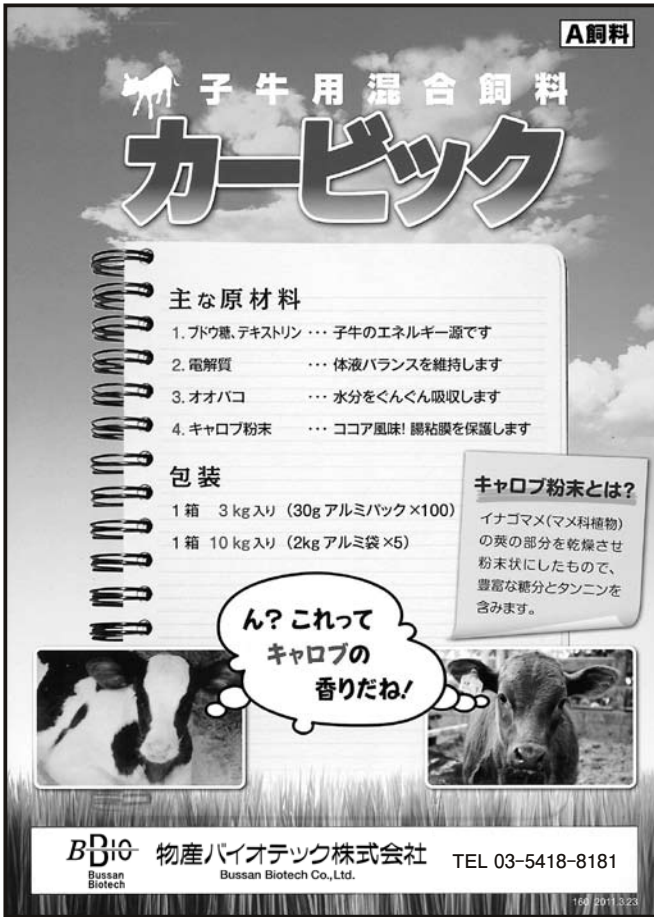 A飼料
子牛用混合飼料
カービック
主な原材料
1. ブドウ糖、テキストリン ・・・ 子牛のエネルギー源です
2. 電解質 ・・・ 体液バランスを維持します
3. オオバコ ・・・ 水分をぐんぐん吸収します
4. キャロブ粉末 ・・・ ココア風味! 腸粘膜を保護します
包装
1箱 3kg入り (30g アルミパック×100)
1箱 10kg入り (2kg アルミ袋×5)
キャロブ粉末とは?
イナゴマメ(マメ科植物)
の莢の部分を乾燥させ
粉末状にしたもので、
豊富な糖分とタンニンを
含みます。
ん? これって
キャロブの
香りだね!
BBIO
Bussan
Biotech
物産バイオテック株式会社
Bussan Biotech Co.,Ltd.
TEL 03-5418-8181
160 2011.3.23